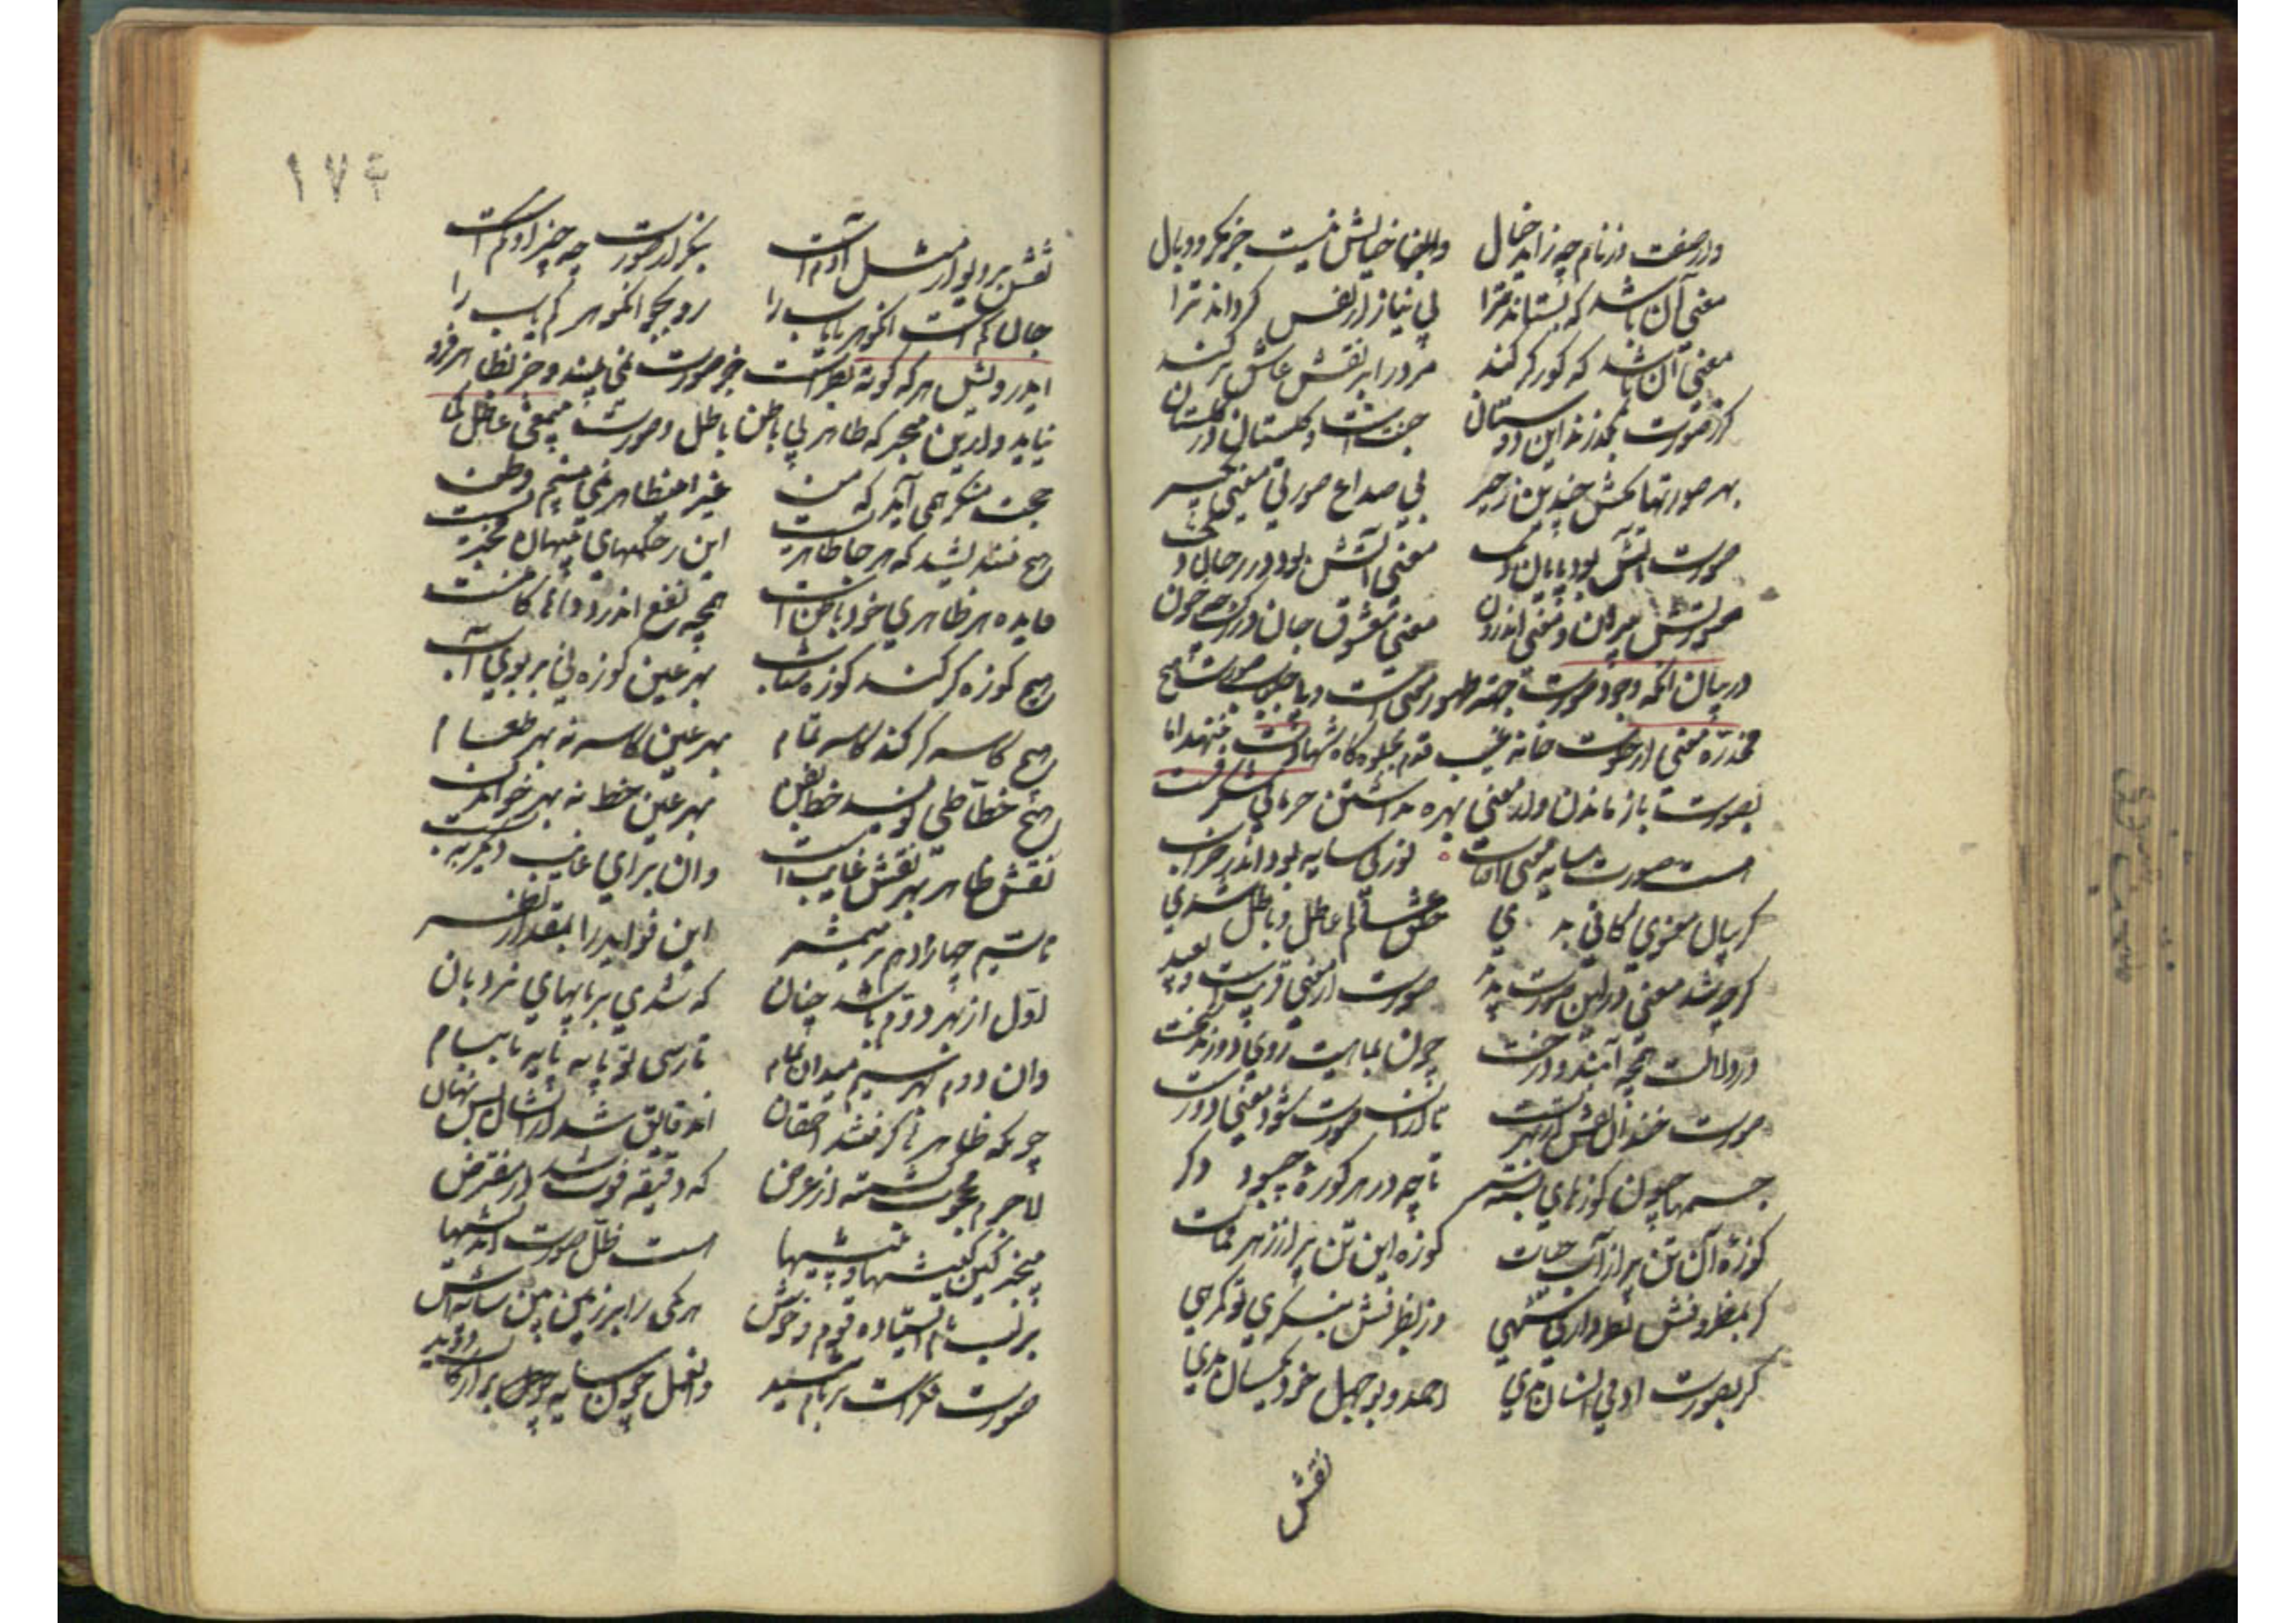 وز صفت وز نام چه زاید خیال والنخا خیالش نیست جز مکر و وبال
معنی آن باشد که بستاند ترا بی نیاز از نقش گرداند ترا
معنی آن باشد که کور و کر کند مرد را بر نقش عاشق تر کند
گر ز صورت بگذرید این دوستان جنت است و گلستان در گلستان
بهر صورتها مکش چندین زحیر بی صداع صورتی معنی بگیر
صورت آتش بود پایان دیک معنی آتش بود در جان دیک
صورتش بیرون و معنی اندرون معنی معشوق جان در رگ چو خون
در بیان آنکه وجود صورت جهته ظهور معنی است و بیاجب صورت هیچ
مخدره معنی از خلوت خانه غیب قدم بجلوه گاه شهادت ننهد اما
بصورت باز ماندن و از معنی بهره نداشتن حرمانی شگرفت
هست صورت سایه معنی آفتاب نور بی سایه بود اندر خراب
گر بیان معنوی کافی بدی خلق عالم عاطل و باطل شدی
گرچه شد معنی در این صورت پدید صورت از معنی قریبست و بعید
در دلالت همچو آبند و درخت چون بماهیت روی دورند سخت
صورت خندان نقش از بهر تست تا از آن صورت شود معنی درست
جسمها چون کوزهای بسته سر تا چه در هر کوزه چبود در نگر
کوزه آن تن پر از آب حیات کوزه این تن پر از زهر ممات
گر بمظروفش نظر داری شهی ور بظرفش بنگری تو گمرهی
گر بصورت آدمی انسان بدی احمد و بوجهل خود یکسان بدی
نقش
۱۷۴
نقش بر دیوار مثل آدم است بنگر از صورت چه چیز او کم است
جان کم است آن گوهر بایاب را رو بجو آن گوهر کم یاب را
ای درویش هر که کوته نظر است جز صورت نمی بیند و جز بظاهر فرو
نیاید و از این بیخبر که ظاهر بی باطن باطل و صورت بیمعنی عاطل
حجت منکر همی آید که من غیر این ظاهر نمی بینم وطن
هیچ نندیشد که هر جا ظاهریست آن ز حکمتهای پنهان مخبریست
فایده هر ظاهری خود باطن است همچو نفع اندر دواها کامنست
هیچ کوزه گر کند کوزه شتاب بهر عین کوزه نی بر بوی آب
هیچ کاسه گر کند کاسه تمام بهر عین کاسه نه بهر طعام
هیچ خطاطی نویسد خط بفن بهر عین خط نه بهر خواندن
نقش ظاهر بهر نقش غایب است وان برای غایب دیگر ببست
تا سیم چهارم دهم بر میشمر این فواید را بمقدار نظر
اول از بهر دوم باشد چنان که شدی بر پایهای نردبان
وان دوم بهر سیم میدان تمام تا رسی تو پایه پایه تا ببام
چونکه ظاهرها گرفتند احمقان آن دقایق شد از ایشان بس نهان
لاجرم محجوب گشتند از غرض که دقیقه فوت شد در مفترض
بیخبر کین کیشها و پیشها هست ظل صورت اندیشها
بر لب بام ایستاده قوم خوش هر یکی را بر زمین بین سایه اش
صورت فکر است بر بام مشید وان عمل چون سایه بر ارکان پدید